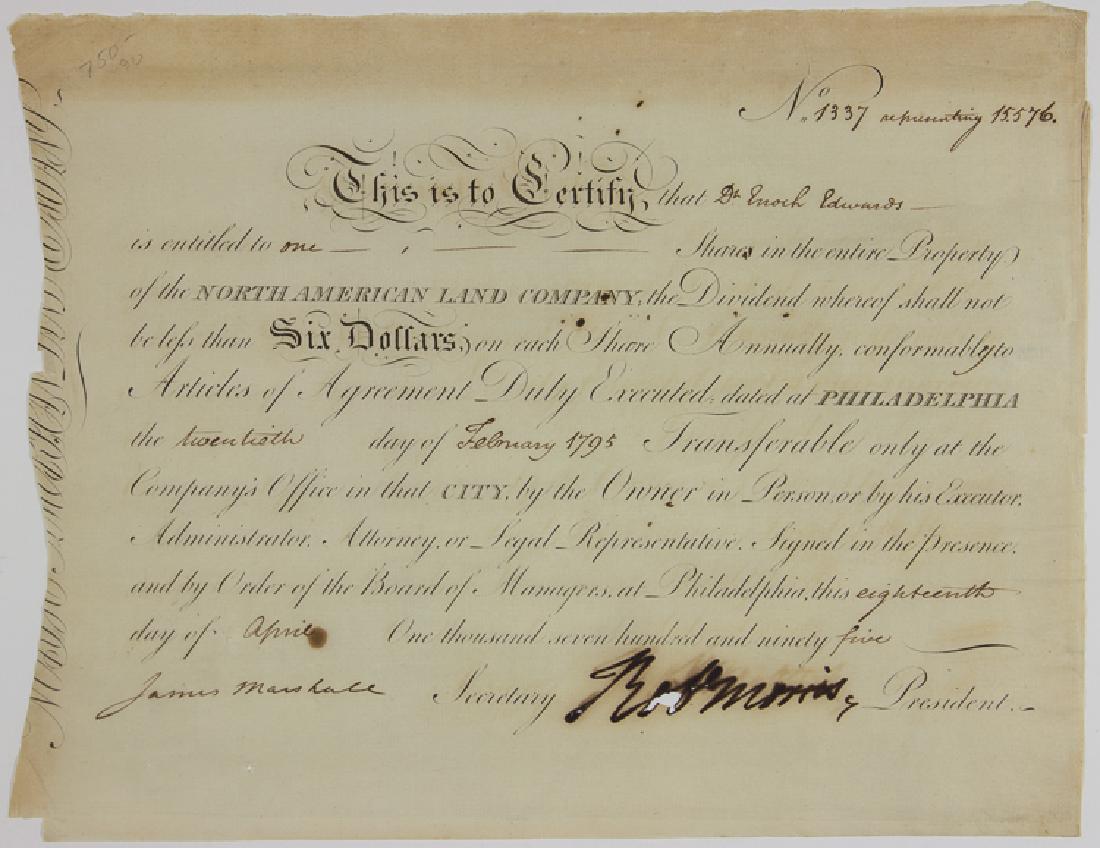 750
90
No. 1337 representing 15.576.
This is to Certify, that Dr. Enoch Edwards
is entitled to one Shares in the entire Property
of the NORTH AMERICAN LAND COMPANY, the Dividend whereof shall not
be less than Six Dollars, on each Share Annually, conformably to
Articles of Agreement Duly Executed, dated at PHILADELPHIA
the twentieth day of February 1795 Transferable only at the
Company's Office in that CITY, by the Owner in Person, or by his Executor,
Administrator, Attorney, or Legal Representative. Signed in the presence,
and by Order of the Board of Managers, at Philadelphia, this eighteenth
day of April One thousand seven hundred and ninety five
James Marshall Secretary Rob Morris President.